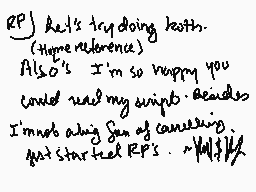 RP) Let's try doing both.
(Home reference)
Also's I'm so happy you
could read my script. Besides
I'm not a big fan of cancelling
just started RP's. ~